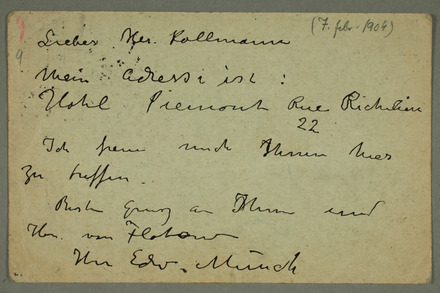 (7. febr. 1904)
9
Lieber Her. Kollmann
Mein Adresse ist:
Hotel Piemont Rue Richelieu
22
Ich freue mich Ihnen hier
zu treffen.
Beste Gruss an Ihnen und
Hrn. von Flotow
Ihr Edv. Munch